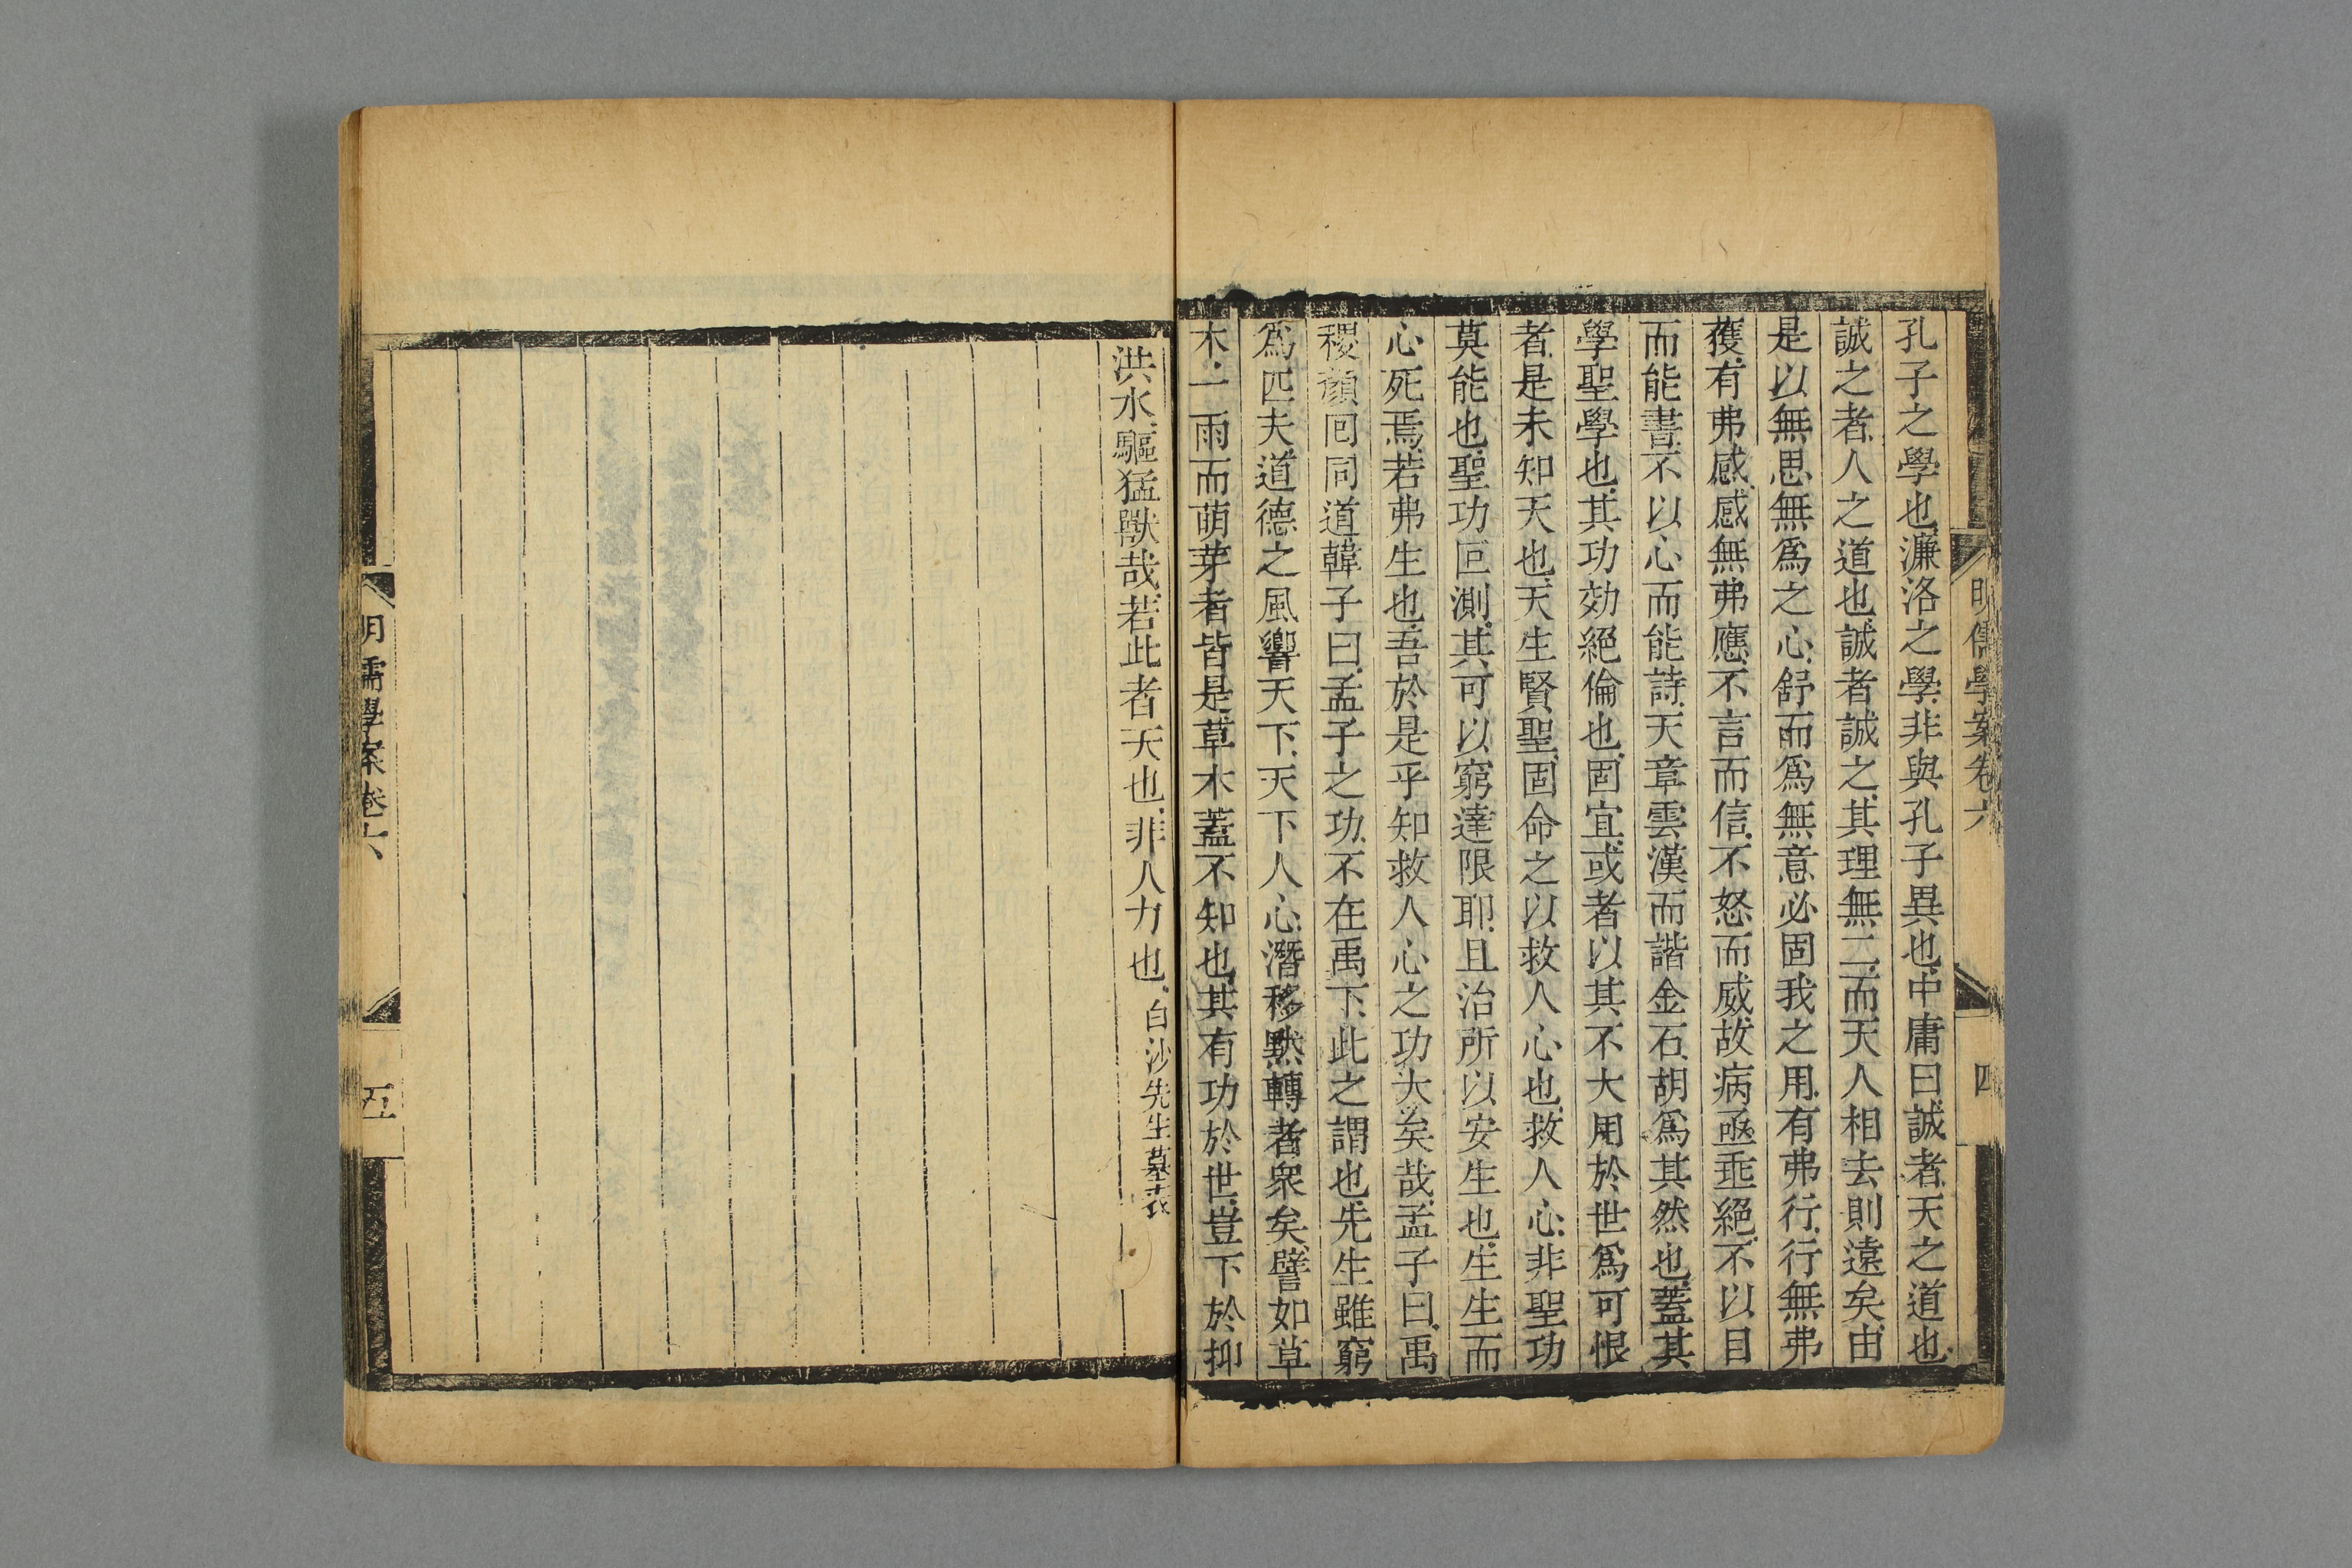 明儒學案卷六
四
孔子之學也濂洛之學非與孔子異也中庸曰誠者天之道也
誠之者人之道也誠者誠之其理無二而天人相去則遠矣由
是以無思無爲之心舒而爲無意必固我之用有弗行行無弗
獲有弗感感無弗應不言而信不怒而威故病亟垂絕不以目
而能書不以心而能詩天章雲漢而諧金石胡爲其然也蓋其
學聖學也其功効絕倫也固宜或者以其不大用於世爲可恨
者是未知天也天生賢聖固命之以救人心也救人心非聖功
莫能也聖功叵測其可以窮達限耶且治所以安生也生生而
心死焉若弗生也吾於是乎知救人心之功大矣哉孟子曰禹
稷顏回同道韓子曰孟子之功不在禹下此之謂也先生雖窮
爲匹夫道德之風響天下天下人心潛移默轉者衆矣譬如草
木一雨而萌芽者皆是草木蓋不知也其有功於世豈下於抑
洪水驅猛獸哉若此者天也非人力也白沙先生墓表
明儒學案卷六
五